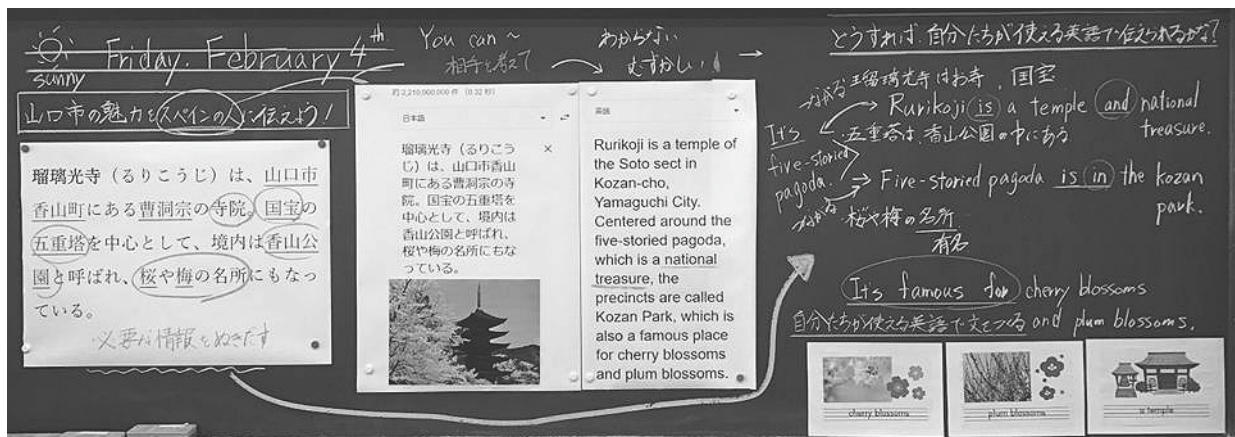 Friday. February 4th
sunny
山口市の魅力をスペインの人に伝えよう!
瑠璃光寺(るりこうじ)は、山口市
香山町にある曹洞宗の寺院。国宝の
五重塔を中心として、境内は香山公
園と呼ばれ、桜や梅の名所にもなっ
ている。
必要な情報をぬきだす
You can ~
相手を考えて
わからない
むずかしい
→
約 2,210,000,000 件 (0.32 秒)
日本語
瑠璃光寺(るりこう
じ)は、山口市香山
町にある曹洞宗の寺
院。国宝の五重塔を
中心として、境内は
香山公園と呼ばれ、
桜や梅の名所にもな
っている。
×
英語
Rurikoji is a temple of
the Soto sect in
Kozan-cho,
Yamaguchi City.
Centered around the
five-storied pagoda,
which is a national
treasure, the
precincts are called
Kozan Park, which is
also a famous place
for cherry blossoms
and plum blossoms.
どうすれば、自分たちが使える英語で伝えられるかな?
つなげる
瑠璃光寺はお寺、国宝
Rurikoji is a temple and national
treasure.
It's
five-storied
pagoda.
五重塔は、香山公園の中にある
Five-storied pagoda is in the kozan
park.
桜や梅の名所
有名
It's famous for cherry blossoms
and plum blossoms.
自分たちが使える英語で文をつくる
cherry blossoms
plum blossoms
a temple